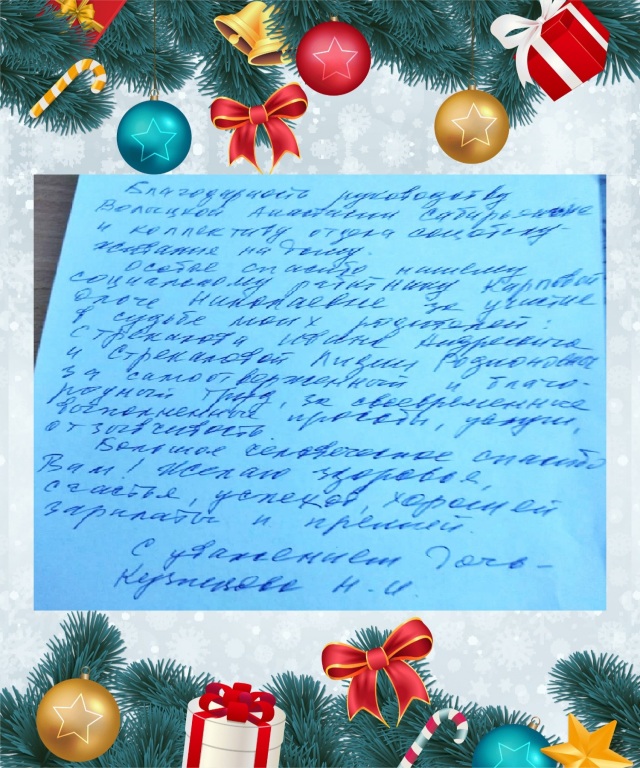 Благодарность руководству
Волицкой Анастасии Сабирьяновне
и коллективу отдела соцобслу-
живания на дому.
Особое спасибо нашему
социальному работнику Карповой
Ольге Николаевне за участие
в судьбе моих родителей:
Стрекалова Ивана Андреевича
и Стрекаловой Лидии Родионовны
за самоотверженный и благо-
родный труд, за своевременные
выполненные просьбы, услуги,
отзывчивость.
Большое человеческое спасибо
Вам! Желаю здоровья,
счастья, успехов, хорошей
зарплаты и премией.
С уважением дочь-
Кузнецова Н.И.